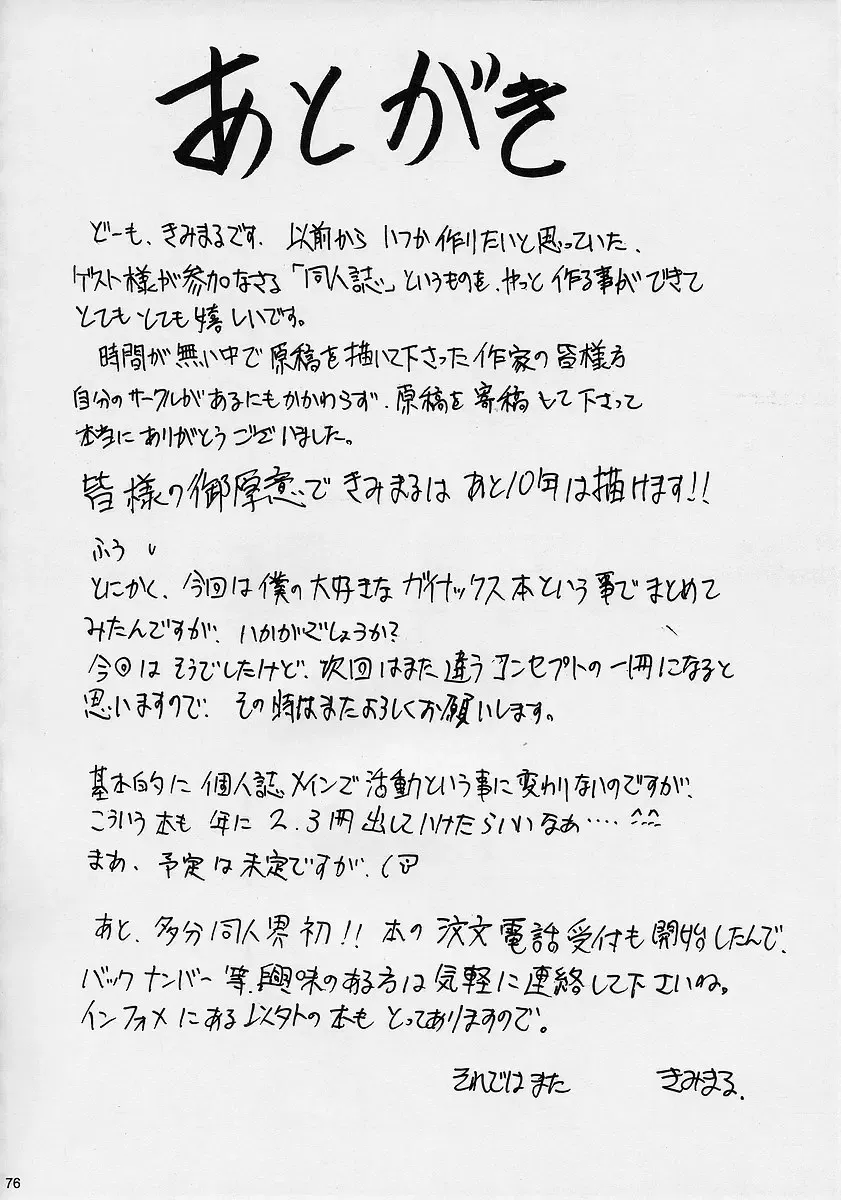 あとがき
どーも、きみまるです。以前から いつか作りたいと思っていた、
ゲスト様が参加なさる「同人誌」というものを、やっと作る事ができて
とてもとても嬉しいです。
時間が無い中で原稿を描いて下さった作家の皆様方
自分のサークルがあるにもかかわらず、原稿を寄稿して下さって
本当にありがとうございました。
皆様の御厚意できみまるは あと10年は描けます!!
ふぅ
とにかく、今回は僕の大好きなガイナックス本という事でまとめて
みたんですが、いかがでしょうか?
今回はそうでしたけど、次回はまた違うコンセプトの一冊になると
思いますので、その時はまたよろしくお願いします。
基本的に個人誌メインで活動という事に変わりないのですが、
こういう本も年に2.3冊出していけたらいいなぁ‥‥
まぁ、予定は未定ですが、
あと、多分同人界初!! 本の注文電話受付も開始したんで、
バックナンバー等、興味のある方は気軽に連絡して下さいね。
インフォメにある以外の本もとってありますので。
それではまた きみまる.
76